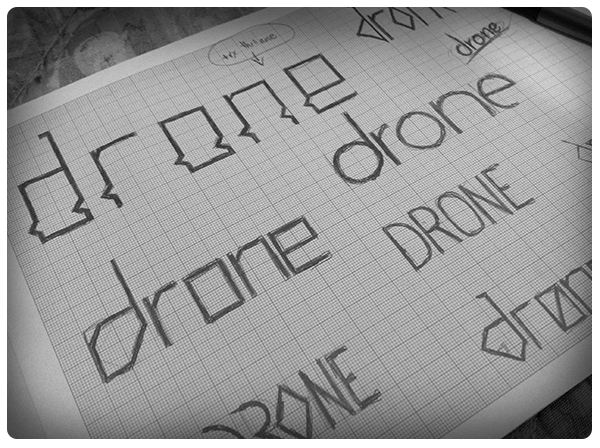 dron
drone
drone
drone
drone
DRONE
drøn
DRONE